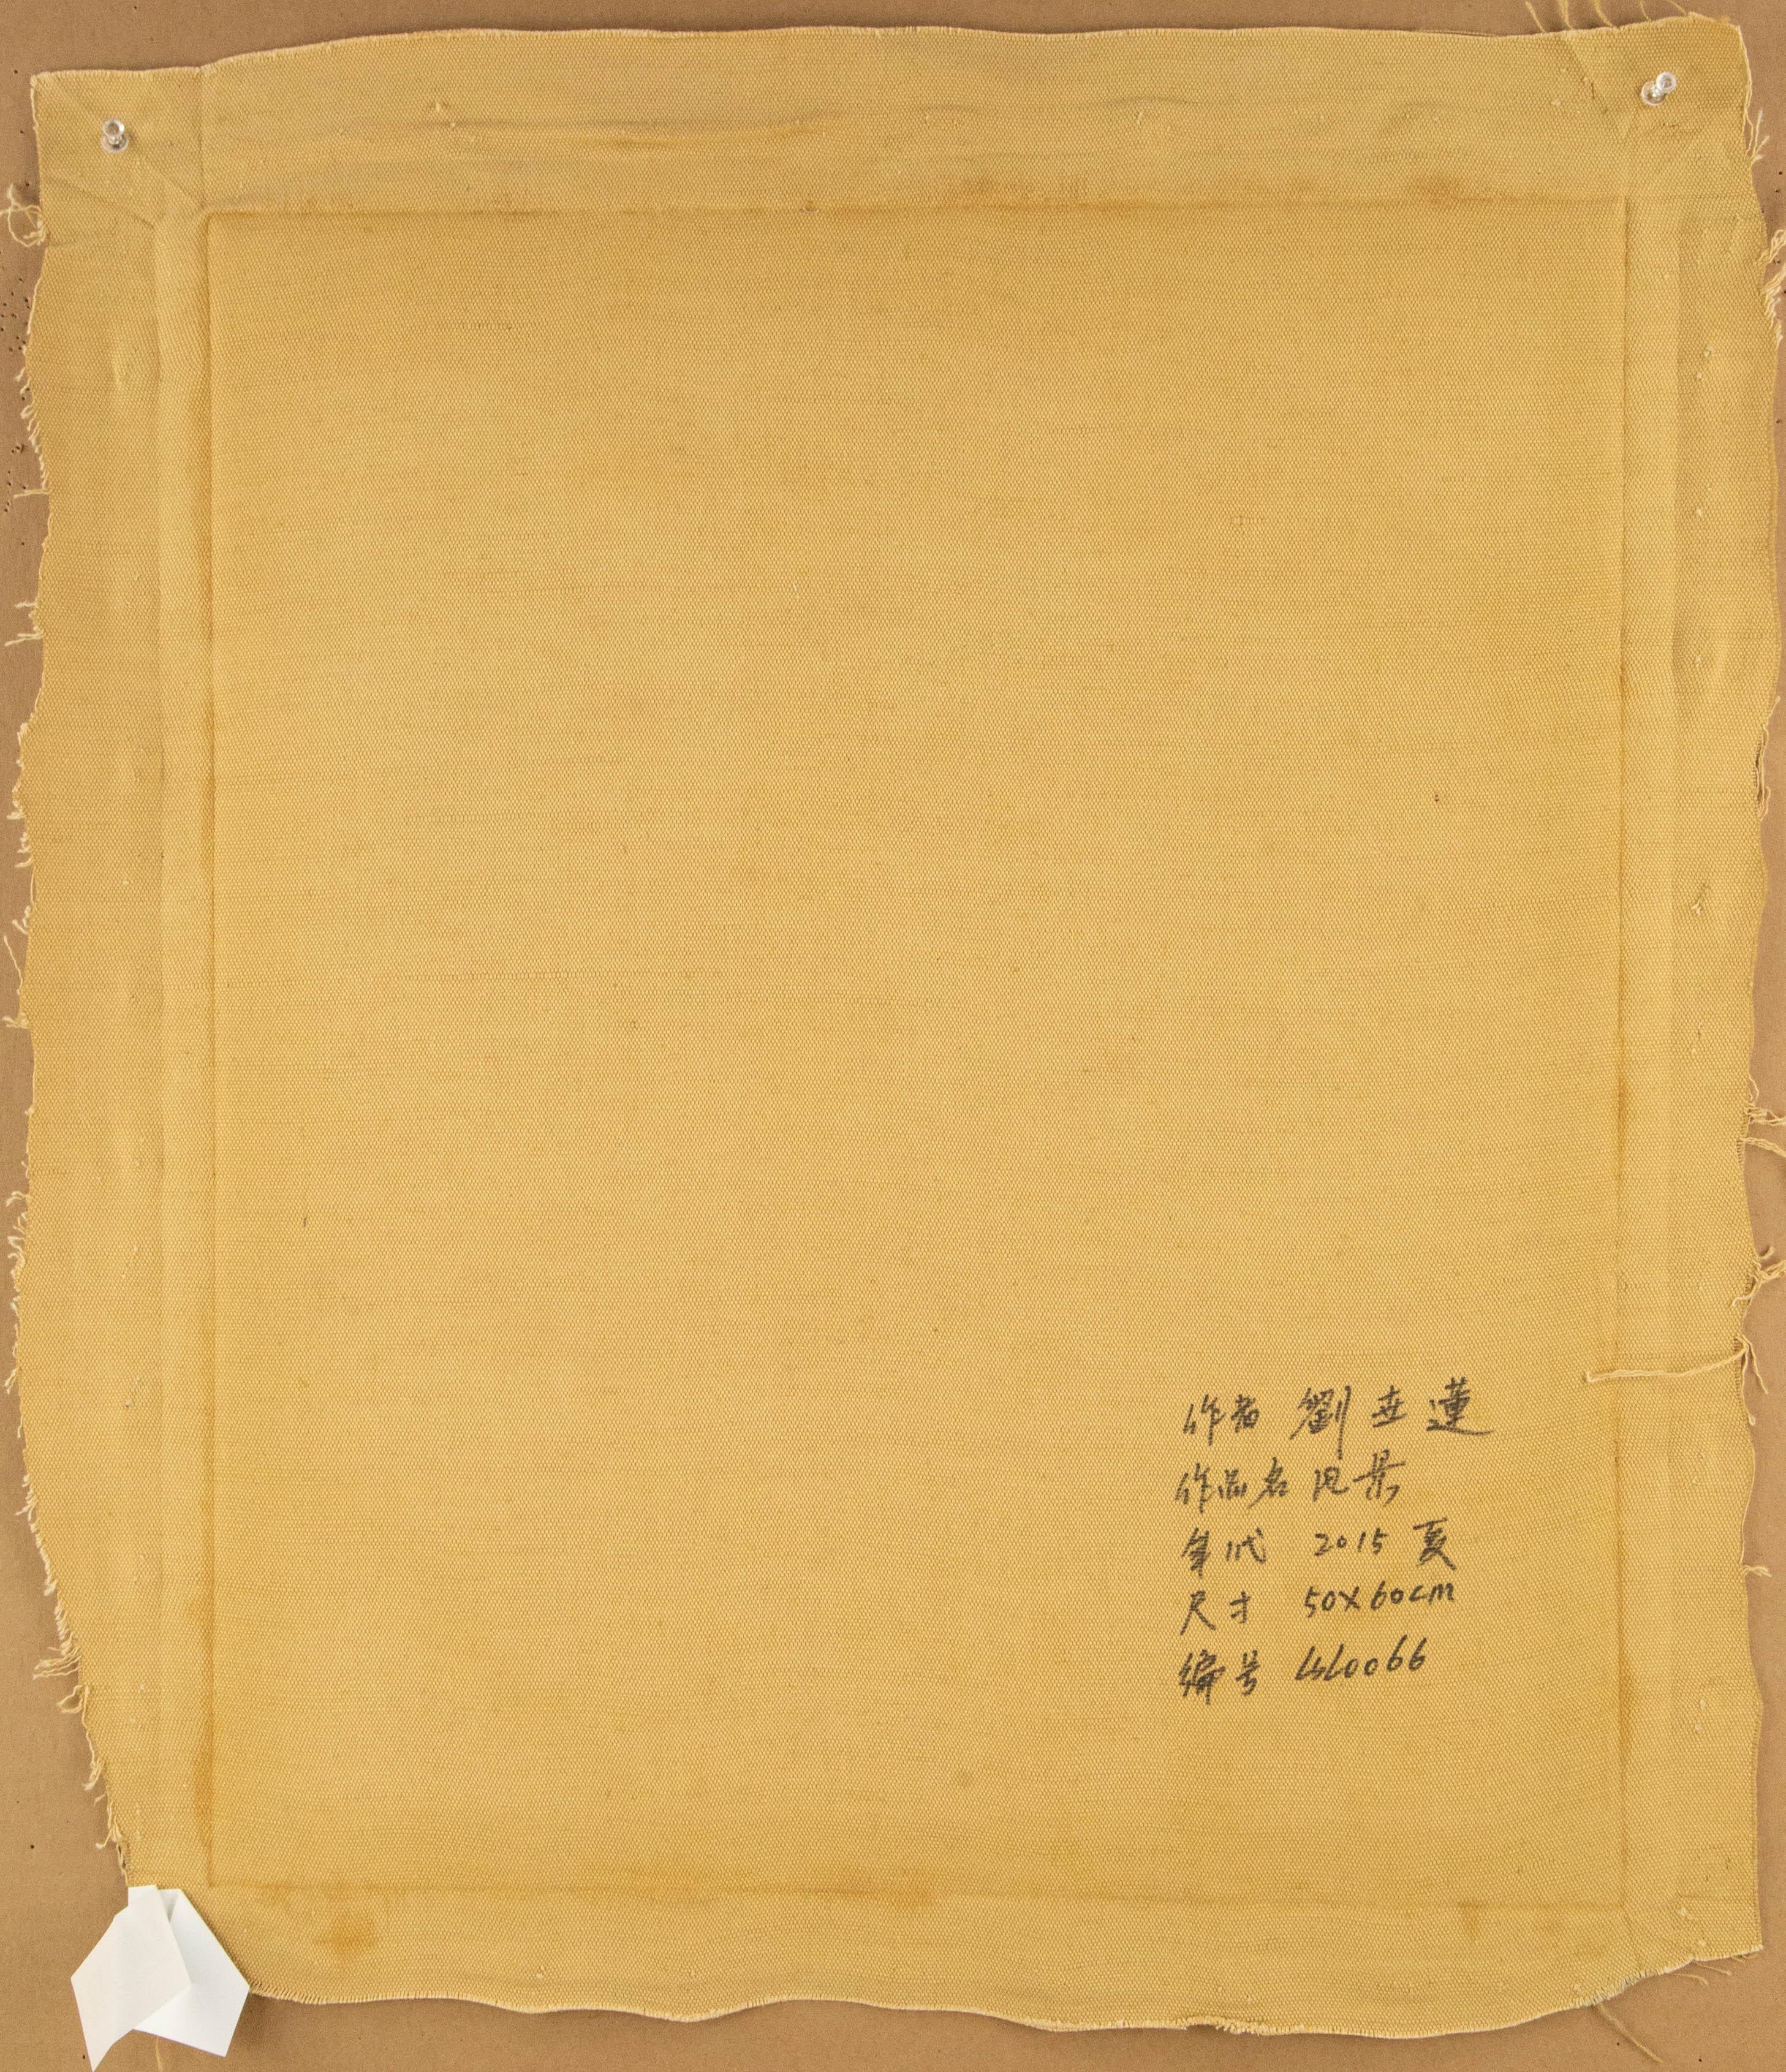 作者 劉世蓮
作品名 风景
年代 2015 夏
尺寸 50X60cm
编号 LSL0066